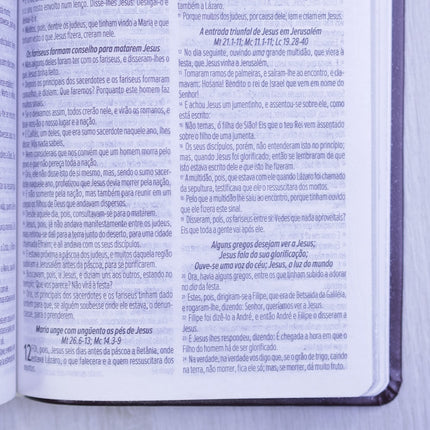 solto. Disse-lhes Jesus: Desligai-o e
Muitos, pois, dentre os judeus que tinham vindo a Maria e que
que Jesus fizera, creram nele.
Os fariseus formam conselho para matarem Jesus
alguns deles foram ter com os fariseus, e disseram-lhes o
Jesus tinha feito.
os principais dos sacerdotes e os fariseus formaram
e diziam: Que faremos? Porquanto este homem faz
sinais.
o deixamos assim, todos crerão nele, e virão os romanos, e
o nosso lugar e a nação.
Caifás, um deles, que era sumo sacerdote naquele ano, lhes
Vós nada sabeis,
considerais que nos convém que um homem morra pelo
e que não pereça toda a nação.
ele não disse isto de si mesmo, mas, sendo o sumo sacer-
daquele ano, profetizou que Jesus devia morrer pela nação.
não somente pela nação, mas também para reunir em um
os filhos de Deus que andavam dispersos.
Desde aquele dia, pois, consultavam-se para o matarem.
Jesus, pois, já não andava manifestamente entre os judeus,
retirou-se dali para a terra junto do deserto, para uma cidade
chamada Efraim; e ali andava com os seus discípulos.
E estava próxima a páscoa dos judeus, e muitos daquela região
a Jerusalém antes da páscoa, para se purificarem.
Buscavam, pois, a Jesus, e diziam uns aos outros, estando no
Que vos parece? Não virá à festa?
Ora, os principais dos sacerdotes e os fariseus tinham dado
para que, se alguém soubesse onde ele estava, o denun-
para o prenderem.
Maria unge com unguento os pés de Jesus
Mt 26.6-13; Mc 14.3-9
12 Foi, pois, Jesus seis dias antes da páscoa a Betânia, onde
estava Lázaro, o que falecera e a quem ressuscitara dos
também a Lázaro,
Porque muitos dos judeus, por causa dele, iam e criam em Jesus.
A entrada triunfal de Jesus em Jerusalém
Mt 21.1-11; Mc 11.1-11; Lc 19.28-40
No dia seguinte, ouvindo uma grande multidão, que viera à
festa, que Jesus vinha a Jerusalém,
Tomaram ramos de palmeiras, e saíram-lhe ao encontro, e cla-
mavam: Hosana! Bendito o rei de Israel que vem em nome do
Senhor!
E achou Jesus um jumentinho, e assentou-se sobre ele, como
está escrito:
Não temas, ó filha de Sião! Eis que o teu Rei vem assentado
sobre o filho de uma jumenta.
Os seus discípulos, porém, não entenderam isto no princípio;
mas, quando Jesus foi glorificado, então se lembraram de que
isto estava escrito dele e que isto lhe fizeram.
A multidão, pois, que estava com ele quando Lázaro foi chamado
da sepultura, testificava que ele o ressuscitara dos mortos.
Pelo que a multidão lhe saiu ao encontro, porque tinham ouvido
que ele fizera este sinal.
Disseram, pois, os fariseus entre si: Vedes que nada aproveitais?
Eis que toda a gente vai após ele.
Alguns gregos desejam ver a Jesus;
Jesus fala da sua glorificação;
Ouve-se uma voz do céu; Jesus, a luz do mundo
Ora, havia alguns gregos, entre os que tinham subido a adorar
no dia da festa.
Estes, pois, dirigiram-se a Filipe, que era de Betsaida da Galiléia,
e rogaram-lhe, dizendo: Senhor, queríamos ver a Jesus.
Filipe foi dizê-lo a André, e então André e Filipe o disseram a
Jesus.
E Jesus lhes respondeu, dizendo: É chegada a hora em que o
Filho do homem há de ser glorificado.
Na verdade, na verdade vos digo que, se o grão de trigo, caindo
na terra, não morrer, fica ele só; mas, se morrer, dá muito fruto.